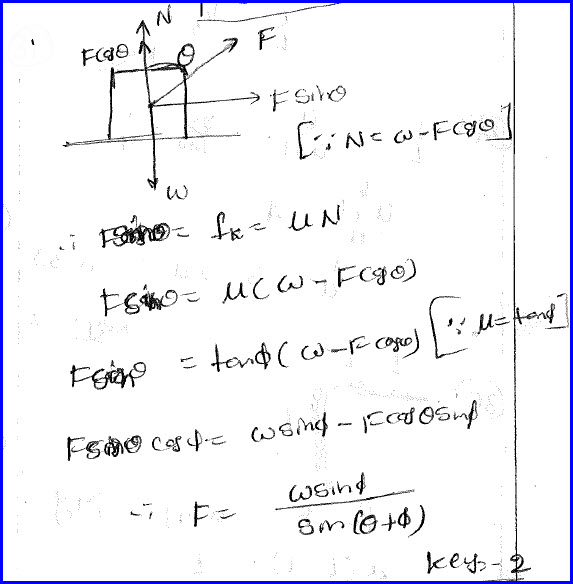 N
Fcosθ
θ
F
Fsinθ
[∵ N = ω - Fcosθ]
ω
∴ Fsinθ = fk = μN
Fsinθ = μ(ω - Fcosθ)
Fsinθ = tanϕ(ω - Fcosθ) [∵ μ = tanϕ]
Fsinθ cosϕ = ωsinϕ - Fcosθsinϕ
∴ F = ωsinϕ / sin(θ+ϕ)
key - 2